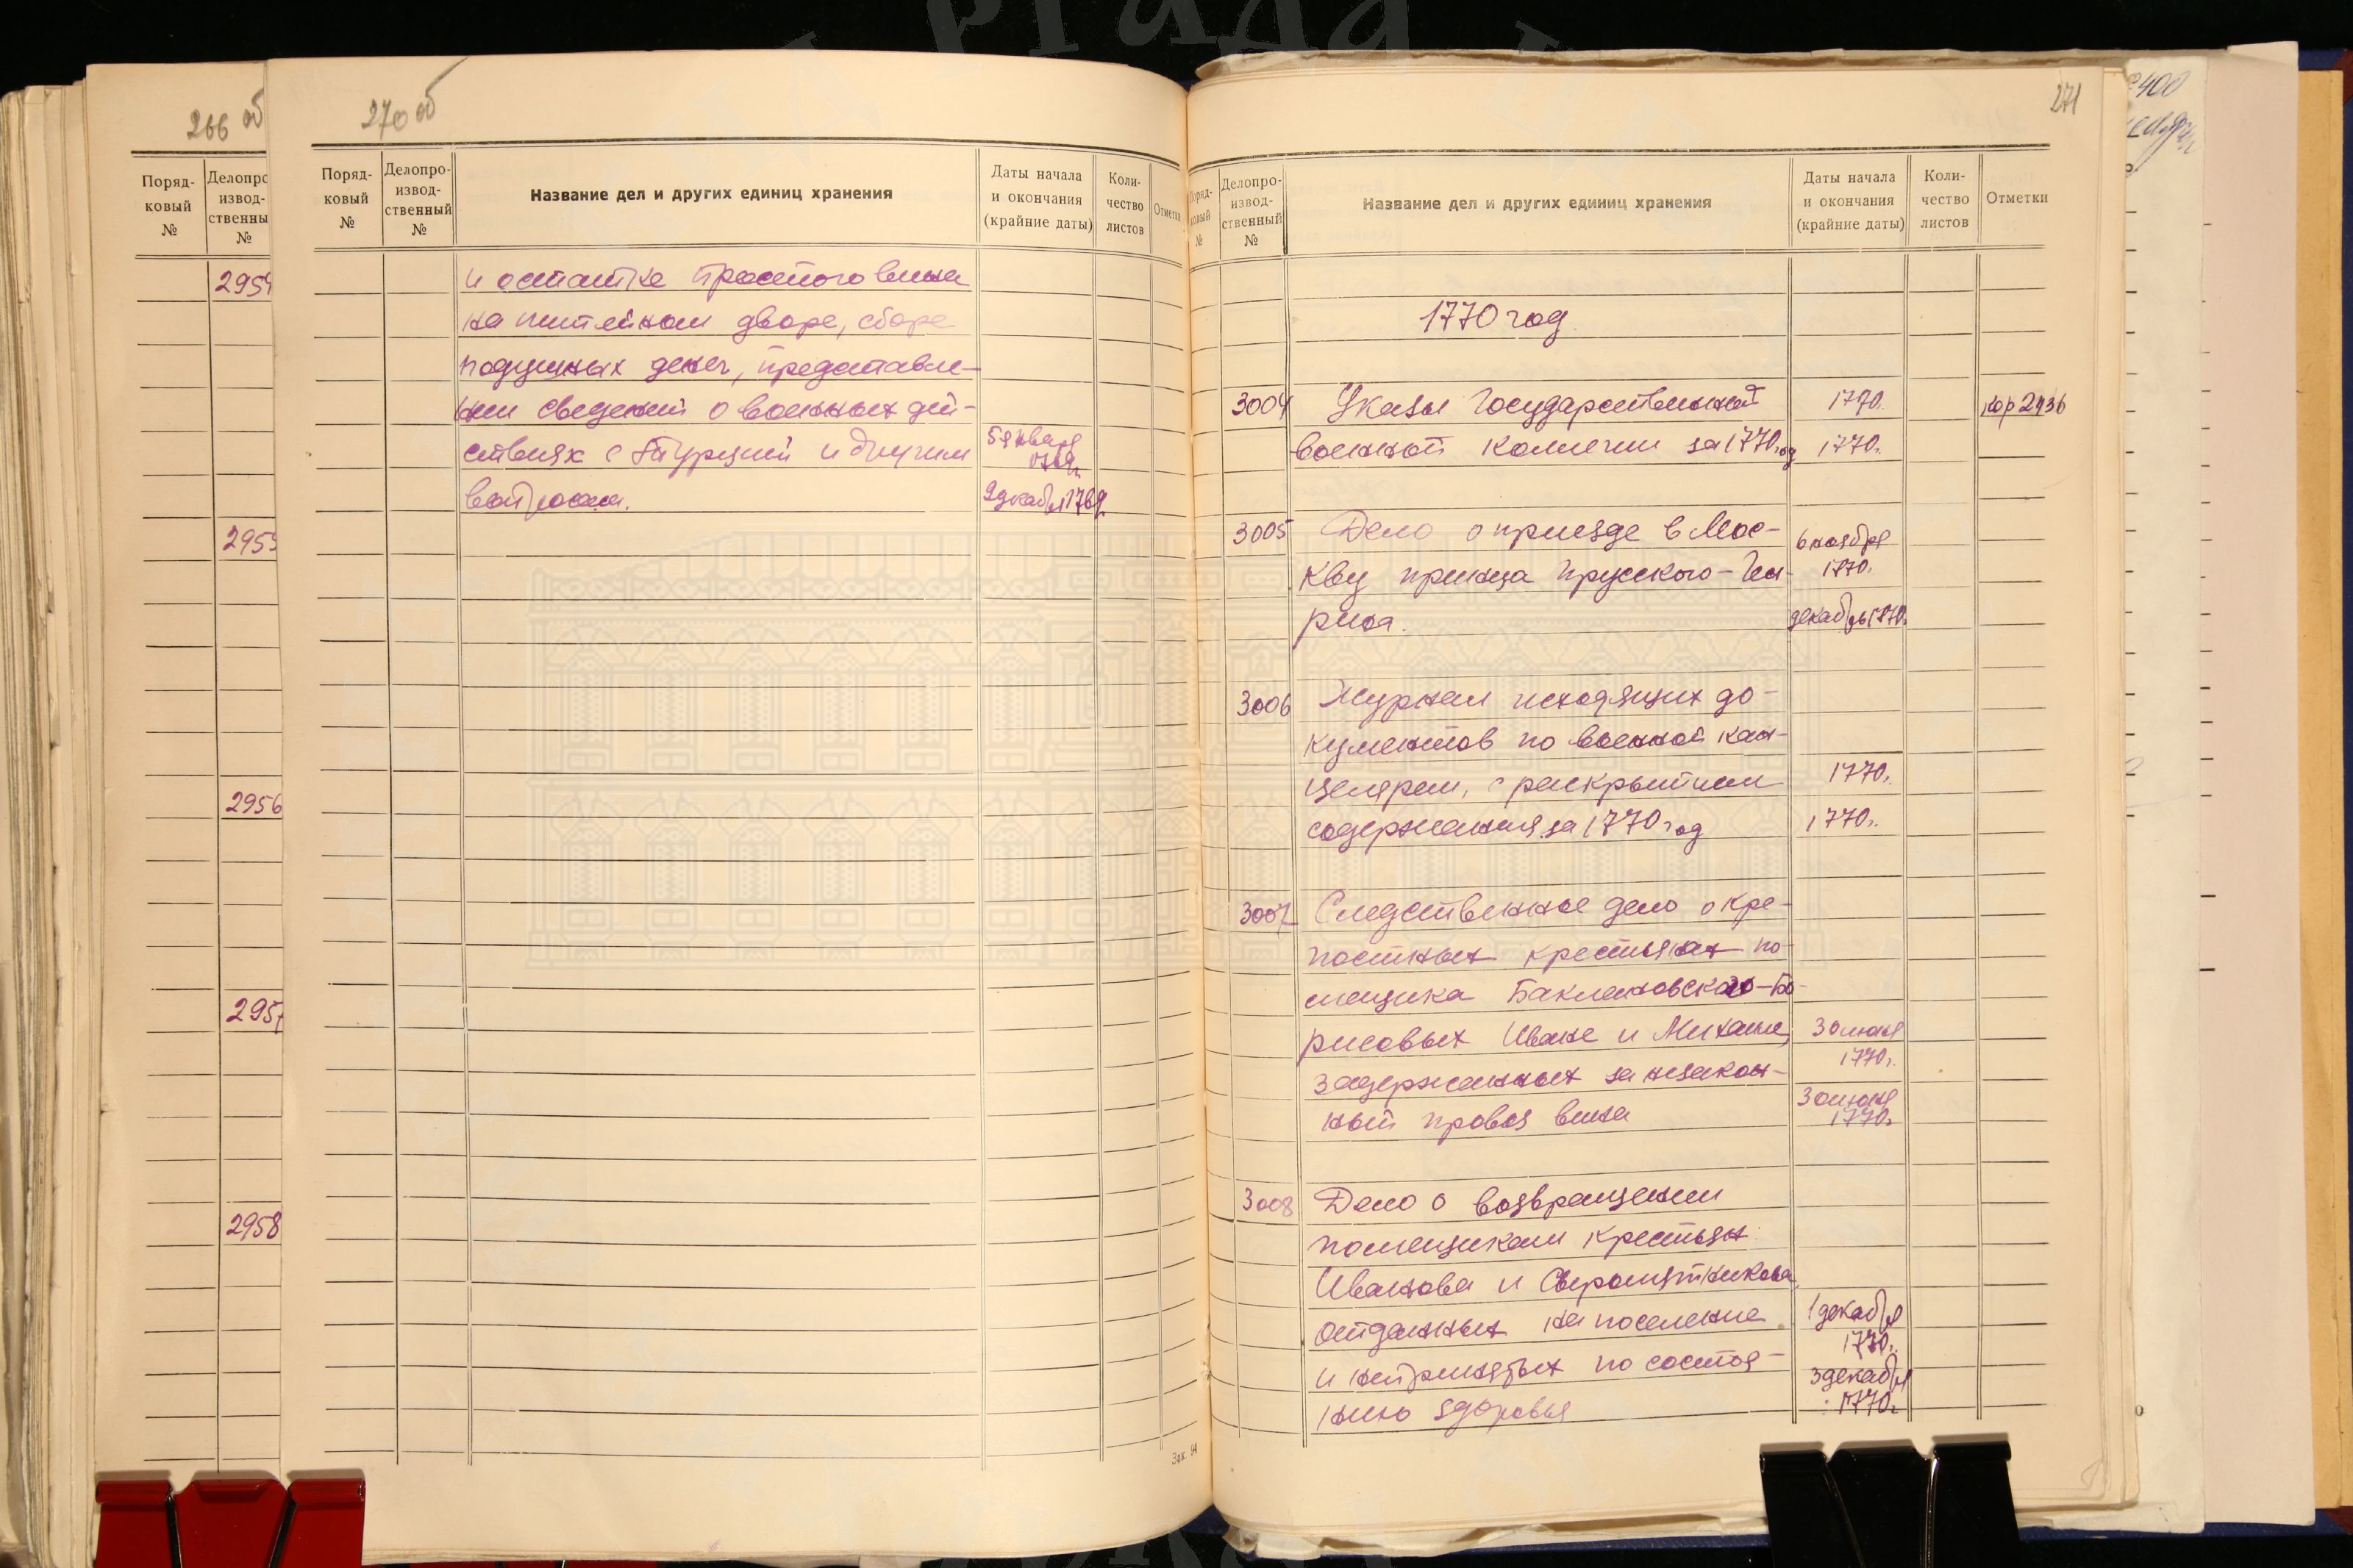 266 об
Поряд-
ковый
№
Делопро
извод-
ственны
№
2955
2956
2958
270 об
Поряд-
ковый
№
Делопро-
извод-
ственный
№
Название дел и других единиц хранения
Даты начала
и окончания
(крайние даты)
Коли-
чество
листов
Отметки
и остатке простого вина
на питейном дворе, сборе
подушных денег, представле-
нии сведений о военных дей-
ствиях с Турцией и другим
вопросам.
5 января
1769г.
9 декабря 1769г.
Зак. 94
271
Поряд-
ковый
№
Делопро-
извод-
ственный
№
Название дел и других единиц хранения
Даты начала
и окончания
(крайние даты)
Коли-
чество
листов
Отметки
1770 год
3004 Указы Государственной 1770. кор 2936
военной коллегии за 1770 год 1770г.
3005 Дело о приезде в Мос- 6 ноября
кву принца прусского - Ген- 1770г.
риха. декабрь 1770г.
3006 Журнал исходящих до-
кументов по военной кан-
целярии, с раскрытием 1770г.
содержания за 1770 год 1770г.
3007 Следственное дело о кре-
постных крестьянах по-
мещика Баклановского - Бо-
рисовых Иване и Михаиле, 30 июня
1770г.
задержанных за незакон-
ный провоз вина 30 июня
1770г.
3008 Дело о возвращении
помещикам крестьян:
Иванова и Сыромятникова,
отданных на поселение 1 декабря
1770г.
и непринятых по состоя- 3 декабря
нию здоровья 1770г.